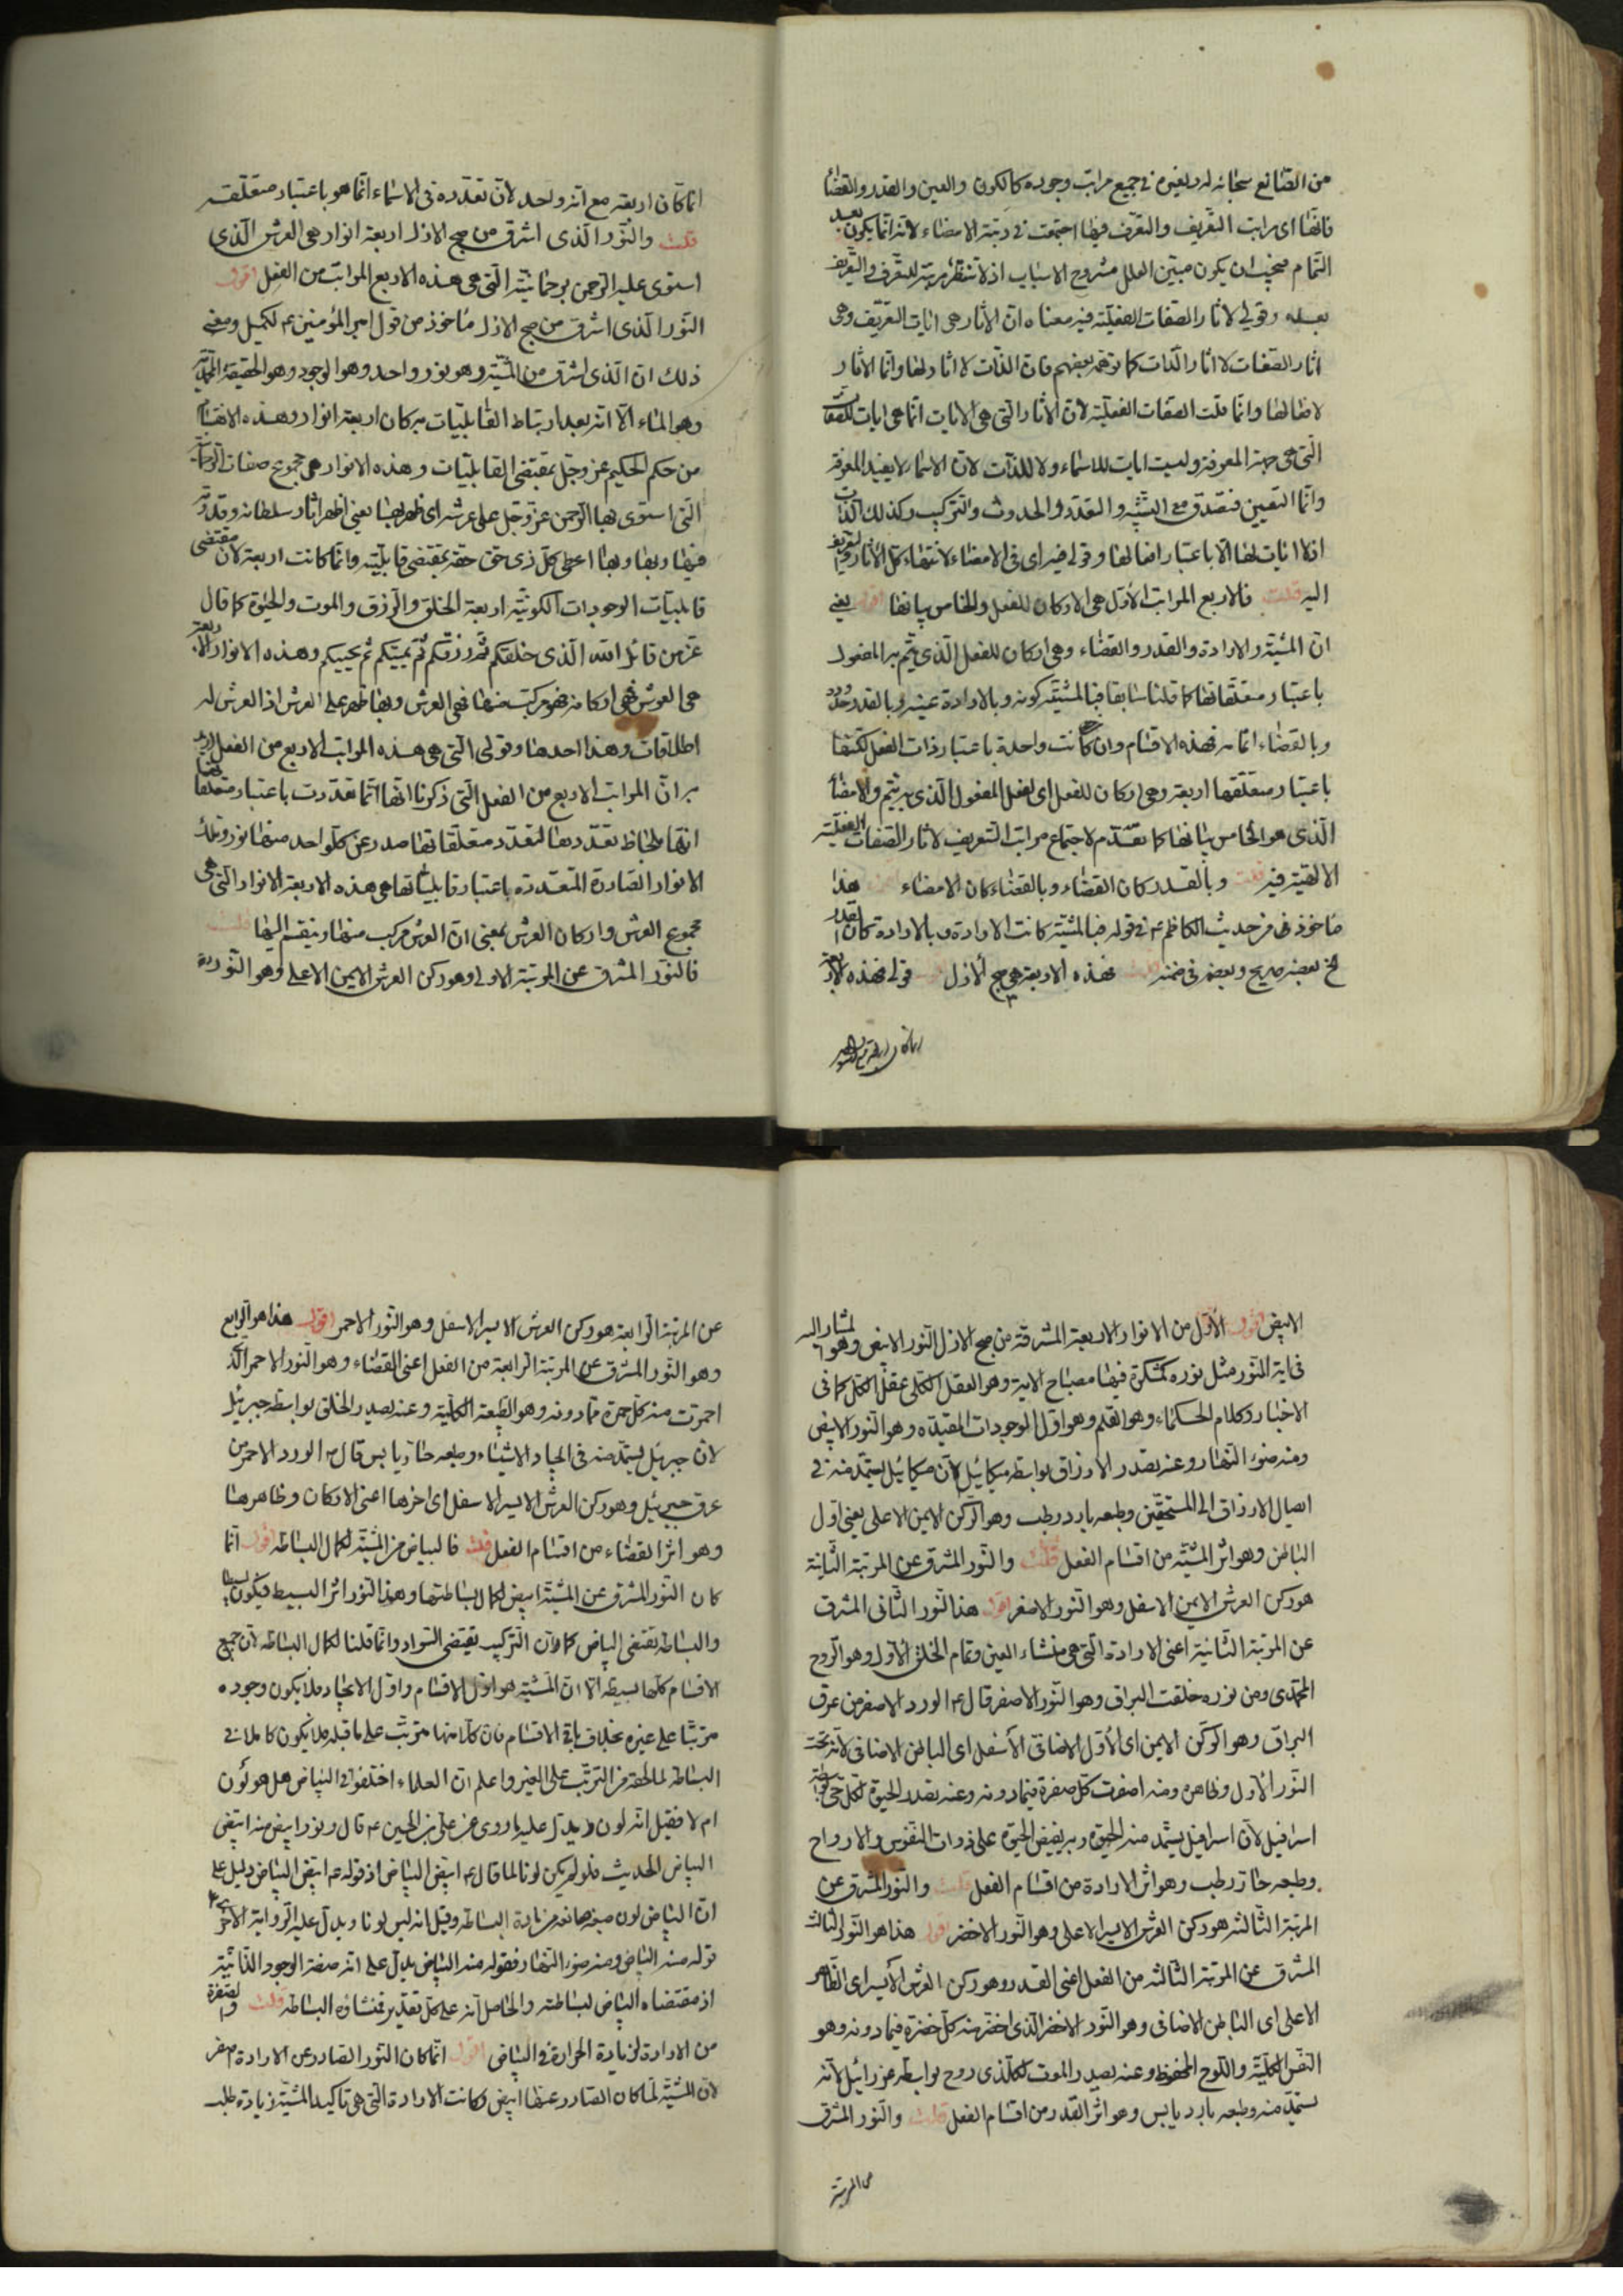 من الصانع سبحانه له ولغيره في جميع مراتب وجوده كالكون والعين والقدر والقضاء
فانها اى مراتب التعريف والتعرف فيها اجتمعت في رتبة الامضاء لانه انما يكون بعد
التمام فيجب ان يكون مبين العلل مشروح الاسباب اذ لا تنتظر مرتبة للتعرف والتعريف
بعده وقولي لاثار الصفات الفعلية فيه معناه ان الاثار هى ايات التعريف وهى
اثار الصفات لا اثار الذات كما توهمه بعضهم فان الذات لا اثار لها وانما الاثار
لافعالها وانما قلت الصفات الفعلية لان الاثار التى هى الايات انما هى ايات للصفات
التى هى جهة المعرفة وليست ايات للاسماء ولا للذات لان الاسماء لا يفيد المعرفة
وانما التعيين فتصدق مع التشبه والتعدد والحدوث والتركيب وكذلك الذات
اذ لا ايات لها الا باعتبار افعالها وقولي فيه اى فى الامضاء لانتهاء كل الاثار
اليه قلت فالاربع المراتب الاول هى الاركان للفعل والخامس بيانها اقول يعنى
ان المشية والارادة والقدر والقضاء وهى اركان للفعل الذى يتم به المفعول
باعتبار متعلقاتها كما قلنا سابقا فبالمشية كونه وبالارادة عينه وبالقدر حدوده
وبالقضاء اتمامه فهذه الاقسام وان كانت واحدة باعتبار ذات الفعل لكنها
باعتبار متعلقها اربعة وهى اركان للفعل اى لفعل المفعول الذى به يتم والامضاء
الذى هو الخامس بيانها كما تقدم لاجتماع مراتب التعريف لاثار الصفات الفعلية
الالهية فيه قلت وبالقدر كان القضاء وبالقضاء كان الامضاء اقول هذا
مأخوذ من حديث الكاظم ع في قوله فبالمشية كانت الارادة وبالارادة كان القدر
الخ بعضه صريح وبعضه فى ضمنه قلت فهذه الاربعة هى صبح الازل اقول قولى فهذه الاربعة
انما كان اربعة مع انه واحد لان تعدده فى الاسماء انما هو باعتبار متعلقه
قلت والنور الذى اشرق من صبح الازل اربعة انوار هى العرش الذى
استوى عليه الرحمن برحمانيته التى هى هذه الاربع المراتب من الفعل اقول
النور الذى اشرق من صبح الازل مأخوذ من قول امير المؤمنين ع لكميل ومعنى
ذلك ان الذى اشرق من المشية وهو نور واحد وهو الوجود وهو الحقيقة المحمدية
وهو الماء الا انه بعد ارتباط القابليات به كان اربعة انوار وهذه الاقسام
من حكم الحكيم عز وجل بمقتضى القابليات وهذه الانوار هى مجموع صفات الرحمانية
التى استوى بها الرحمن عز وجل على عرشه اى ظهر بها يعنى اظهر اثار سلطانه وقدرته
فيها وبها وبها اعطى كل ذى حق حقه بمقتضى قابليته وانما كانت اربعة لان مقتضى
قابليات الوجودات الكونية اربعة الخلق والرزق والموت والحيوة كما قال
عز من قائل الله الذى خلقكم ثم رزقكم ثم يميتكم ثم يحييكم وهذه الانوار الاربعة
هى العرش اى اركانه فهو مركب منها فهى العرش وبها ظهر على العرش اذ العرش له
اطلاقات وهذا احدها وقولى التى هى هذه المراتب الاربع من الفعل اريد
به ان المراتب الاربع من الفعل التى ذكرنا انها انما تعددت باعتبار متعلقاتها
انها بلحاظ تعددها لتعدد متعلقاتها صدر عن كل واحد منها نور وتلك
الانوار الصادرة المتعددة باعتبار قابلياتها هى هذه الاربعة الانوار التى هى
مجموع العرش واركان العرش بمعنى ان العرش مركب منها وينقسم اليها قلت
فالنور المشرق عن المرتبة الاولى وهو ركن العرش الايمن الاعلى وهو النور
الابيض اقول الاول من الانوار الاربعة المشرقة من صبح الازل النور الابيض وهو المشار اليه
فى اية النور مثل نوره كمشكوة فيها مصباح الاية وهو العقل الكلى عقل الكل كما فى
الاخبار وكلام الحكماء وهو القلم وهو اول الوجودات المقيدة وهو النور الابيض
ومنه ضوء النهار وعنه تصدر الارزاق بواسطة ميكائيل لان ميكائيل يستمد منه في
ايصال الارزاق الى المستحقين وطبعه بارد رطب وهو الركن الايمن الاعلى يعنى اول
الباطن وهو اثر المشية من اقسام الفعل قلت والنور المشرق عن المرتبة الثانية
هو ركن العرش الايمن الاسفل وهو النور الاصفر اقول هذا النور الثانى المشرق
عن المرتبة الثانية اعنى الارادة التى هى منشاء العين وتمام الخلق الاول وهو الروح
المحمدى ومن نوره خلقت البراق وهو النور الاصفر قال ع الورد الاصفر من عرق
البراق وهو الركن الايمن اى الاول الاضافى الاسفل اى الباطن الاضافى لانه تحت
النور الاول وظاهره ومنه اصفرت كل صفرة فيما دونه وعنه تصدر الحيوة لكل حى بواسطة
اسرافيل لان اسرافيل يستمد منه الحيوة وبه يفيض الحيوة على ذوات النفوس والارواح
وطبعه حار رطب وهو اثر الارادة من اقسام الفعل قلت والنور المشرق عن
المرتبة الثالثة هو ركن العرش الايسر الاعلى وهو النور الاخضر اقول هذا هو النور الثالث
المشرق عن المرتبة الثالثة من الفعل اعنى القدر وهو ركن العرش الايسر اى الظاهر
الاعلى اى الباطن الاضافى وهو النور الاخضر الذى اخضر منه كل خضرة فيما دونه وهو
النفس الكلية واللوح المحفوظ وعنه يصدر الموت لكل ذى روح بواسطة عزرائيل لانه
يستمد منه وطبعه بارد يابس وهو اثر القدر من اقسام الفعل قلت والنور المشرق
عن المرتبة
عن المرتبة الرابعة هو ركن العرش الايسر الاسفل وهو النور الاحمر اقول هذا هو الرابع
وهو النور المشرق عن المرتبة الرابعة من الفعل اعنى القضاء وهو النور الاحمر الذى
احمرت منه كل حمرة فيما دونه وهو الطبيعة الكلية وعنه يصدر الخلق بواسطة جبرئيل
لان جبرئيل يستمد منه فى ايجاد الاشياء وطبعه حار يابس قال ع الورد الاحمر من
عرق جبرئيل وهو ركن العرش الايسر الاسفل اى اخرها اعنى الاركان وظاهرها
وهو اثر القضاء من اقسام الفعل قلت فالبياض من المشية لكمال البساطة اقول انما
كان النور المشرق عن المشية ابيض لكمال بساطتها وهذا النور اثر البسيط فيكون بسيطا
والبساطة تقتضى البياض كما ان التركيب يقتضى السواد وانما قلنا لكمال البساطة لان جميع
الاقسام كلها بسيطة الا ان المشية هو اول الاقسام واول الايجاد فلا يكون وجوده
مترتبا على غيره بخلاف باقى الاقسام فان كلا منها مترتب على ما قبله فلا يكون كاملا في
البساطة لما لحقه من الترتب على الغير واعلم ان العلماء اختلفوا فى البياض هل هو لون
ام لا فقيل انه لون ويدل عليه ما روى عن على بن الحسين ع قال ونور ابيض منه ابيض
البياض الحديث فلو لم يكن لونا لما قال ع ابيض البياض اذ قوله ع ابيض البياض دليل على
ان البياض لون وقيل انه ليس لونا ويدل عليه الرواية الاخرى
قوله منه البياض ومنه ضوء النهار فقوله منه البياض يدل على انه صفة الوجود الذاتية
اذ مقتضاه البياض لبساطته والحاصل انه على كل تقدير فمنشاؤه البساطة قلت والصفرة
من الارادة لزيادة الحرارة في البياض اقول انما كان النور الصادر عن الارادة اصفر
لان المشية لما كان الصادر عنها ابيض وكانت الارادة التى هى تاكيد المشية زيادة طلب